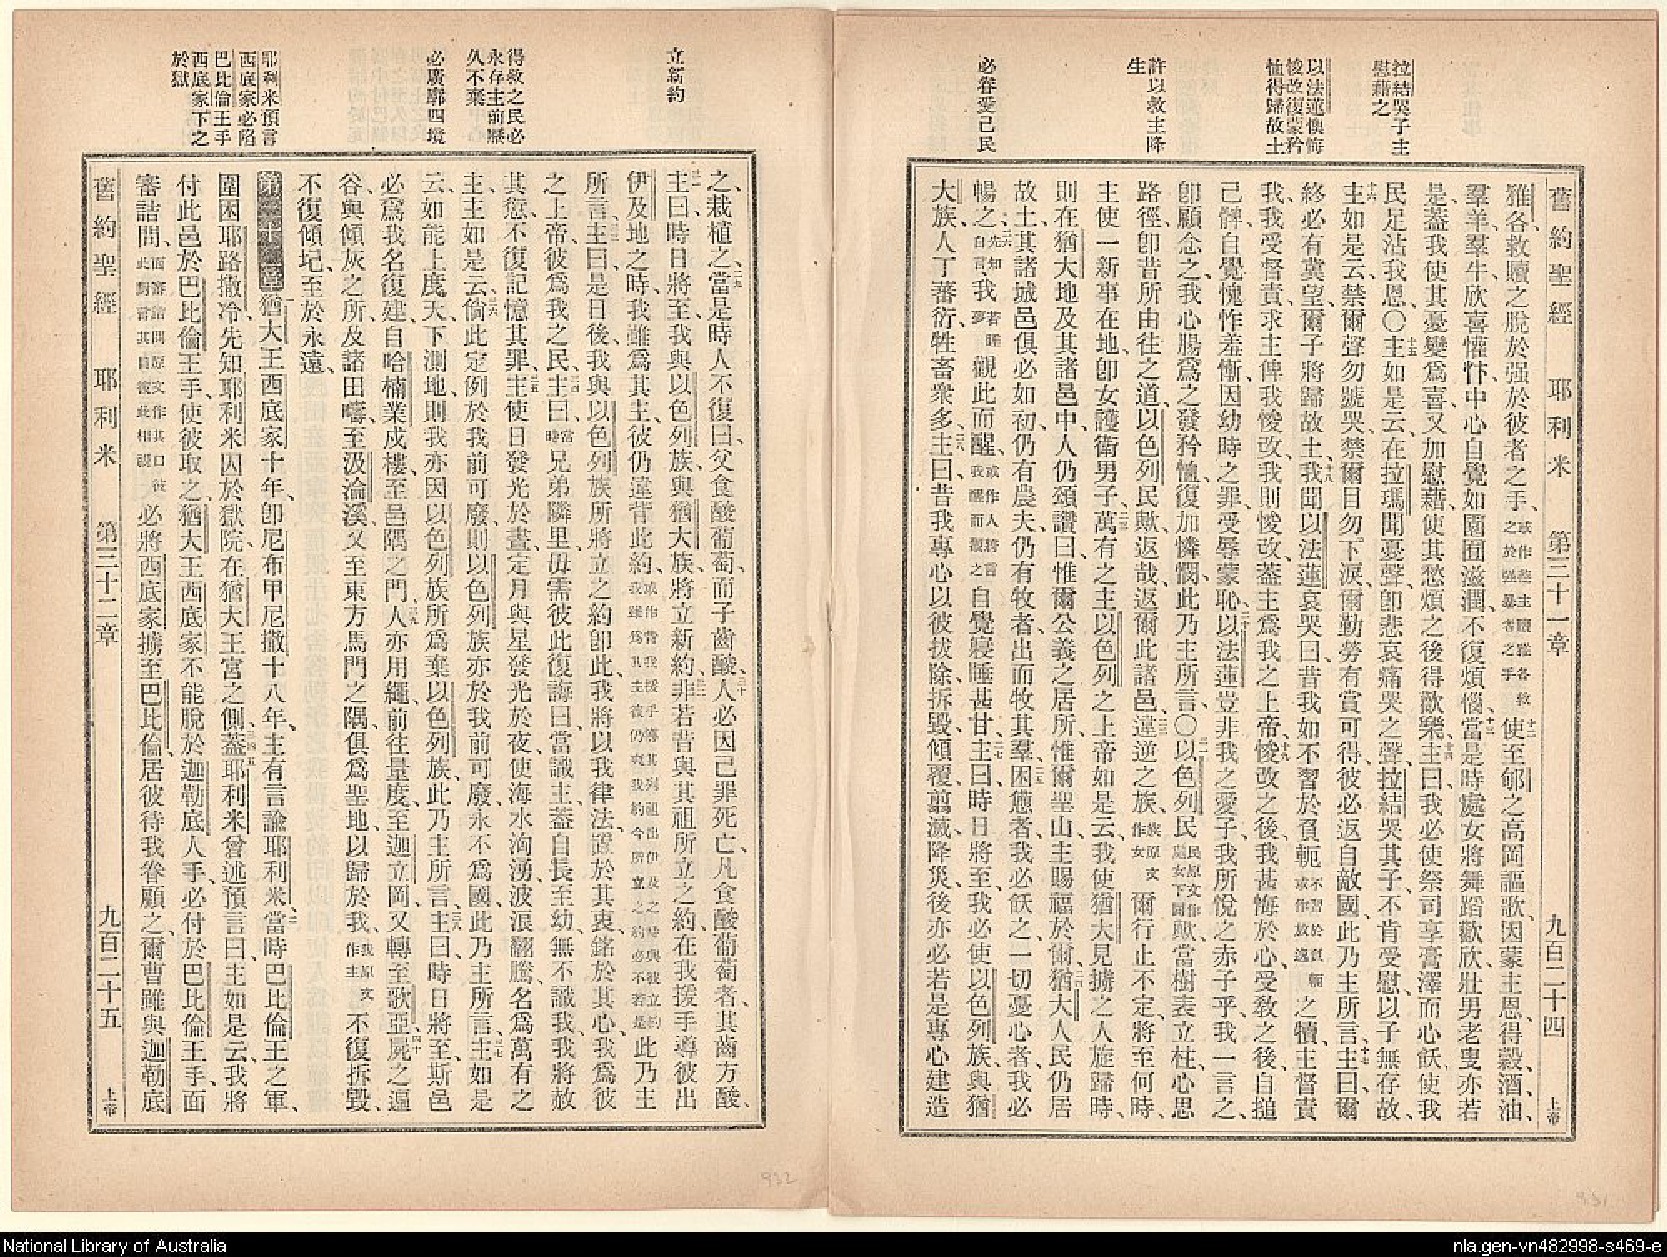 舊約聖經 耶利米 第三十一章 九百二十四 上帝
拉結哭子主
慰藉之
以法蓮懊悔
悛改復蒙矜
恤得歸故土
許以救主降
生
必眷愛己民
雅各救贖之脫於强於彼者之手使至郇之高岡謳歌因蒙主恩得穀酒油
羣羊羣牛欣喜懽忭中心自覺如園囿滋潤不復煩惱當是時處女將舞蹈歡欣壯男老叟亦若
是蓋我使其憂變爲喜又加慰藉使其愁煩之後得歡樂主曰我必使祭司享膏澤而心飫使我
民足沾我恩〇主如是云在拉瑪聞憂聲卽悲哀痛哭之聲拉結哭其子不肯受慰以子無存故
主如是云禁爾聲勿號哭禁爾目勿下淚爾勤勞有賞可得彼必返自敵國此乃主所言主曰爾
終必有冀望爾子將歸故土我聞以法蓮哀哭曰昔我如不習於負軛之犢主督責
我我受督責求主俾我悛改我則悛改蓋主爲我之上帝悛改之後我甚悔於心受敎之後自搥
己髀自覺愧怍羞慚因幼時之罪受辱蒙恥以法蓮豈非我之愛子我所悅之赤子乎我一言之
卽顧念之我心腸爲之發矜恤復加憐憫此乃主所言〇以色列民歟當樹表立柱心思
路徑卽昔所由往之道以色列民歟返哉返爾此諸邑違逆之族爾行止不定將至何時
主使一新事在地卽女護衛男子萬有之主以色列之上帝如是云我使猶大見擄之人旋歸時
則在猶大地及其諸邑中人仍頌讚曰惟爾公義之居所惟爾聖山主賜福於爾猶大人民仍居
故土其諸城邑俱必如初仍有農夫仍有牧者出而牧其羣困憊者我必飫之一切憂心者我必
暢之觀此而醒自覺寢睡甚甘主曰時日將至我必使以色列族與猶
大族人丁蕃衍牲畜衆多主曰昔我專心以彼拔除拆毀傾覆翦滅降災後亦必若是專心建造
立新約
得救之民必
永存主前歷
久不棄
必廣郭四境
耶利米預言
西底家必陷
巴比倫王手
西底家下之
於獄
之栽植之當是時人不復曰父食酸葡萄而子齒酸人必因己罪死亡凡食酸葡萄者其齒方酸
主曰時日將至我與以色列族與猶大族將立新約非若昔與其祖所立之約在我援手導彼出
伊及地之時我雖爲其主彼仍違背此約此乃主
所言主曰是日後我與以色列族所將立之約卽此我將以我律法置於其衷銘於其心我爲彼
之上帝彼爲我之民主曰當時兄弟隣里毋需彼此復誨曰當識主蓋自長至幼無不識我我將赦
其愆不復記憶其罪主使日發光於晝定月與星發光於夜使海水洶湧波浪翻騰名爲萬有之
主主如是云倘此定例於我前可廢則以色列族亦於我前可廢永不爲國此乃主所言主如是
云如能上度天下測地則我亦因以色列族所爲棄以色列族此乃主所言主曰時日將至斯邑
必爲我名復建自哈楠業戍樓至邑隅之門人亦用繩前往量度至迦立岡又轉至歌亞屍之遍
谷與傾灰之所及諸田疇至汲淪溪又至東方馬門之隅俱爲聖地以歸於我不復拆毀
不復傾圮至於永遠
第三十二章猶大王西底家十年卽尼布甲尼撒十八年主有言諭耶利米當時巴比倫王之軍
圍困耶路撒冷先知耶利米囚於獄院在猶大王宮之側蓋耶利米曾述預言曰主如是云我將
付此邑於巴比倫王手使彼取之猶大王西底家不能脫於迦勒底人手必付於巴比倫王手面
審詰問必將西底家擄至巴比倫居彼待我眷顧之爾曹雖與迦勒底
舊約聖經 耶利米 第三十二章 九百二十五 上帝
932
931
National Library of Australia
nla.gen-vn482998-s469-e